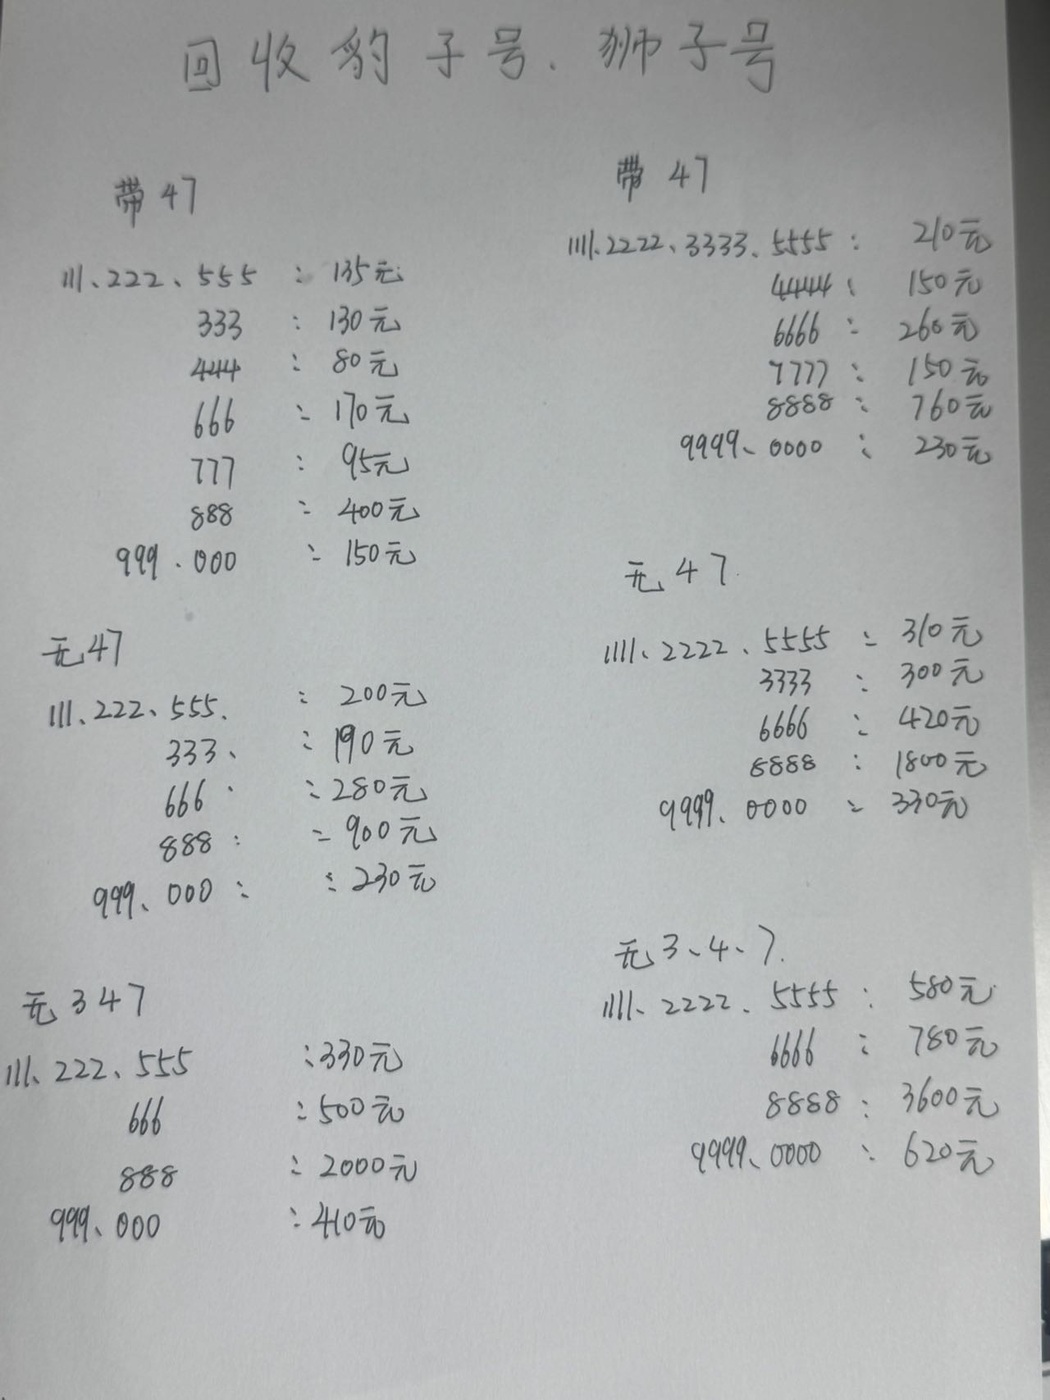 回收豹子号、狮子号
带 47
111、222、555 : 135元
333 : 130元
444 : 80元
666 : 170元
777 : 95元
888 : 400元
999.000 : 150元
无47
111.222、555. : 200元
333、 : 190元
666 : 280元
888 : : 900元
999、000 : : 230元
无347
111、222、555 :330元
666 :500元
888 : 2000元
999、000 : 410元
带 47
1111.2222、3333.5555 : 210元
4444 : 150元
6666 : 260元
7777 : 150元
8888 : 760元
9999、0000 : 230元
无47.
1111、2222、5555 : 310元
3333 : 300元
6666 : 420元
8888 : 1800元
9999、0000 : 330元
无3、4、7.
1111、2222、5555 : 580元
6666 : 780元
8888 : 3600元
9999、0000 : 620元